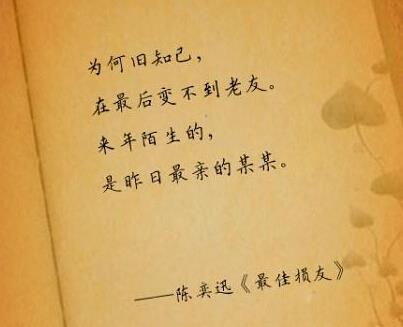 为何旧知己，
在最后变不到老友。
来年陌生的，
是昨日最亲的某某。
——陈奕迅《最佳损友》